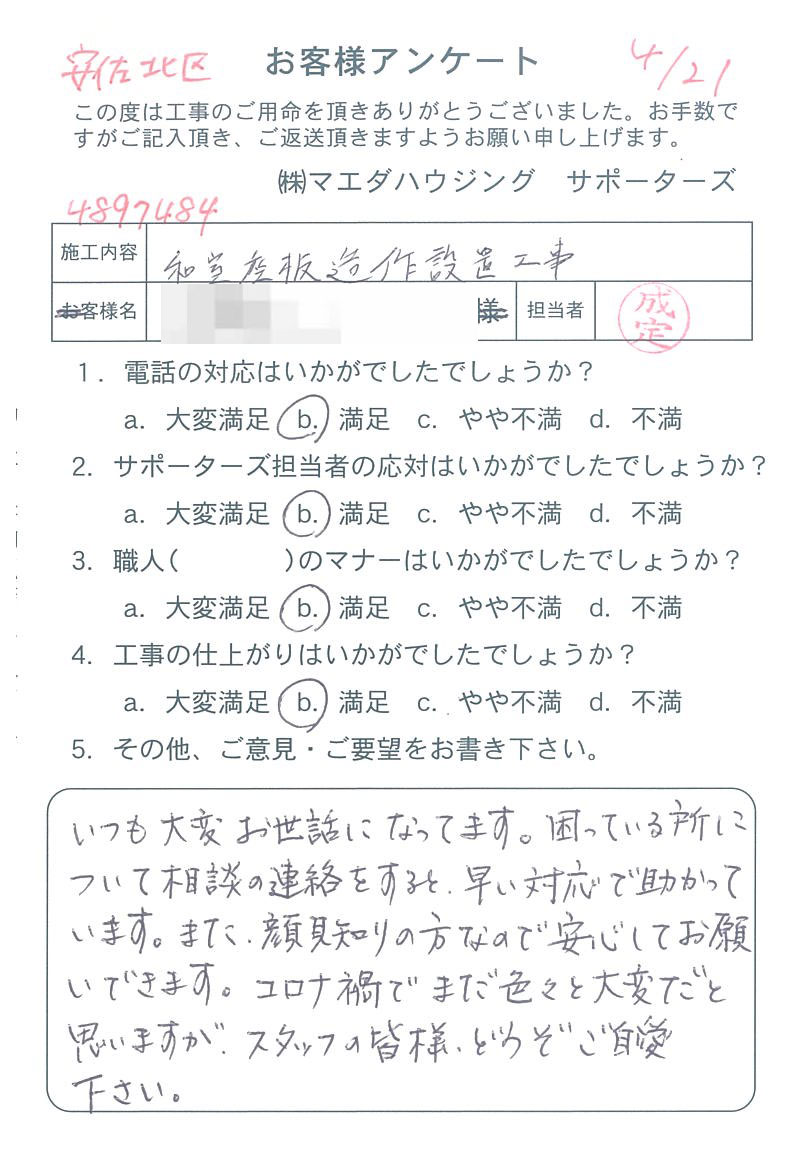 安佐北区 お客様アンケート 4/21
この度は工事のご用命を頂きありがとうございました。お手数で
すがご記入頂き、ご返送頂きますようお願い申し上げます。
㈱マエダハウジング サポーターズ
4897484
施工内容 和室座板造作設置工事
お客様名 様 担当者 成定
1. 電話の対応はいかがでしたでしょうか？
a. 大変満足 b. 満足 c. やや不満 d. 不満
2. サポーターズ担当者の応対はいかがでしたでしょうか？
a. 大変満足 b. 満足 c. やや不満 d. 不満
3. 職人( )のマナーはいかがでしたでしょうか？
a. 大変満足 b. 満足 c. やや不満 d. 不満
4. 工事の仕上がりはいかがでしたでしょうか？
a. 大変満足 b. 満足 c. やや不満 d. 不満
5. その他、ご意見・ご要望をお書き下さい。
いつも大変お世話になってます。困っている所に
ついて相談の連絡をすると、早い対応で助かって
います。また、顔見知りの方なので安心してお願
いできます。コロナ禍でまだ色々と大変だと
思いますが、スタッフの皆様、どうぞご自愛
下さい。